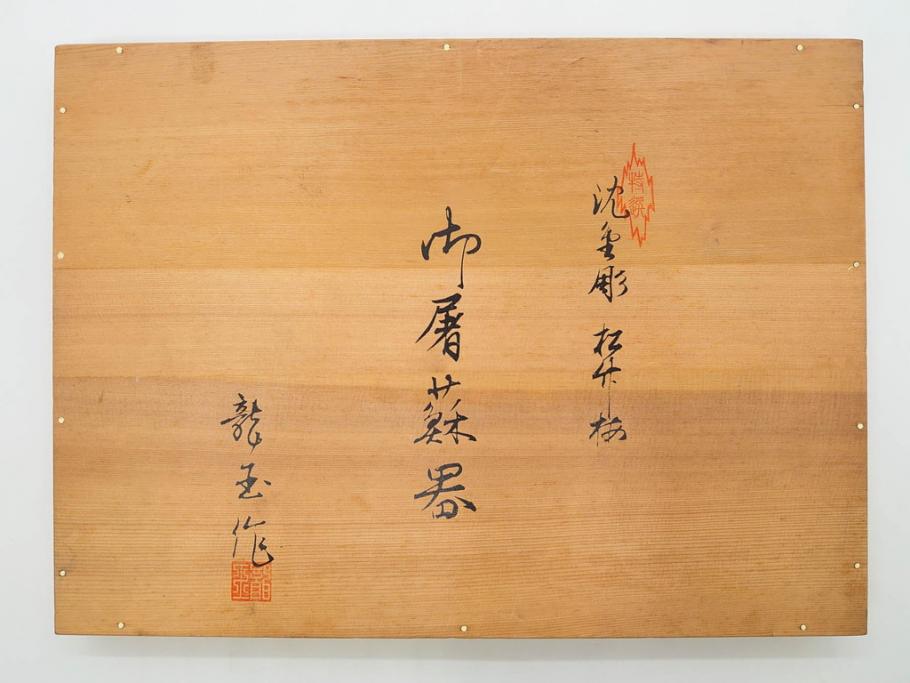 特選
沈金彫 松竹梅
御屠蘇器
龍玉作